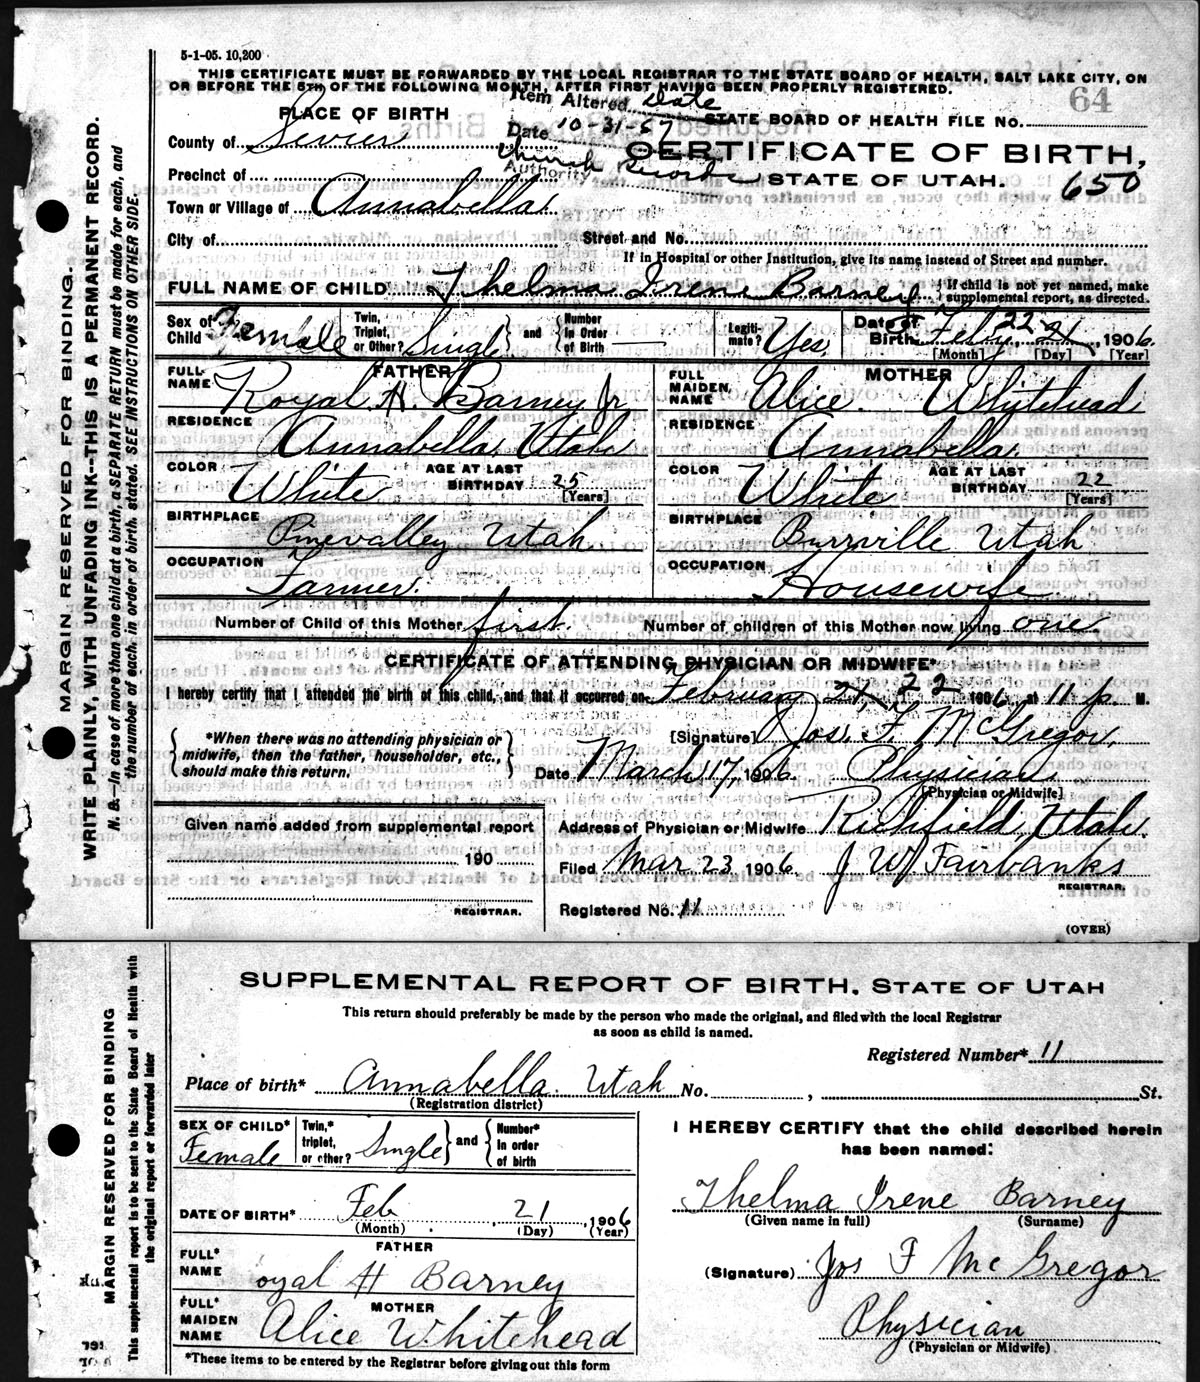 5-1-05. 10,200
THIS CERTIFICATE MUST BE FORWARDED BY THE LOCAL REGISTRAR TO THE STATE BOARD OF HEALTH, SALT LAKE CITY, ON
OR BEFORE THE 5TH OF THE FOLLOWING MONTH, AFTER FIRST HAVING BEEN PROPERLY REGISTERED.
64
Item Altered Date
PLACE OF BIRTH
STATE BOARD OF HEALTH FILE NO.
Date 10-31-57
County of Sevier
Church Records
Authority
CERTIFICATE OF BIRTH,
Precinct of
STATE OF UTAH. 650
Town or Village of Annabella
City of Street and No.
If in Hospital or other Institution, give its name instead of Street and number.
FULL NAME OF CHILD Thelma Irene Barney { If child is not yet named, make supplemental report, as directed.
Sex of Child Female Twin, Triplet, or Other? Single } and { Number in Order of Birth Legitimate? Yes. Date of Birth Feby. 22 21, 1906.
[Month] [Day] [Year]
FATHER MOTHER
FULL NAME Royal H. Barney Jr FULL MAIDEN NAME Alice Whitehead
RESIDENCE Annabella, Utah RESIDENCE Annabella.
COLOR White AGE AT LAST BIRTHDAY 25 [Years] COLOR White AGE AT LAST BIRTHDAY 22 [Years]
BIRTHPLACE Pinevalley Utah. BIRTHPLACE Burrville Utah
OCCUPATION Farmer. OCCUPATION Housewife
Number of Child of this Mother first. Number of children of this Mother now living one.
CERTIFICATE OF ATTENDING PHYSICIAN OR MIDWIFE*
I hereby certify that I attended the birth of this child, and that it occurred on February 21, 22 1906, at 11 p. M.
{ *When there was no attending physician or midwife, then the father, householder, etc., should make this return. }
[Signature] Jos. F. McGregor.
Date March 17, 1906. Physician.
[Physician or Midwife]
Given name added from supplemental report
Address of Physician or Midwife Richfield, Utah.
190
Filed Mar 23 1906. J W Fairbanks
REGISTRAR.
REGISTRAR.
Registered No. 11
(OVER)
MARGIN RESERVED FOR BINDING.
WRITE PLAINLY, WITH UNFADING INK--THIS IS A PERMANENT RECORD.
N. B.--In case of more than one child at a birth, a SEPARATE RETURN must be made for each, and
the number of each, in order of birth stated. SEE INSTRUCTIONS ON OTHER SIDE.
SUPPLEMENTAL REPORT OF BIRTH. STATE OF UTAH
This return should preferably be made by the person who made the original, and filed with the local Registrar
as soon as child is named.
Registered Number* 11
Place of birth* Annabella Utah No. , St.
(Registration district)
SEX OF CHILD* Female Twin,* triplet, or other? Single } and { Number* in order of birth
DATE OF BIRTH* Feb , 21 , 1906
(Month) (Day) (Year)
FATHER
FULL* NAME oyal H Barney
MOTHER
FULL* MAIDEN NAME Alice Whitehead
*These items to be entered by the Registrar before giving out this form
I HEREBY CERTIFY that the child described herein
has been named:
Thelma Irene Barney
(Given name in full) (Surname)
(Signature) Jos F McGregor
Physician
(Physician or Midwife)
MARGIN RESERVED FOR BINDING
This supplemental report is to be sent to the State Board of Health with
the original report or forwarded later